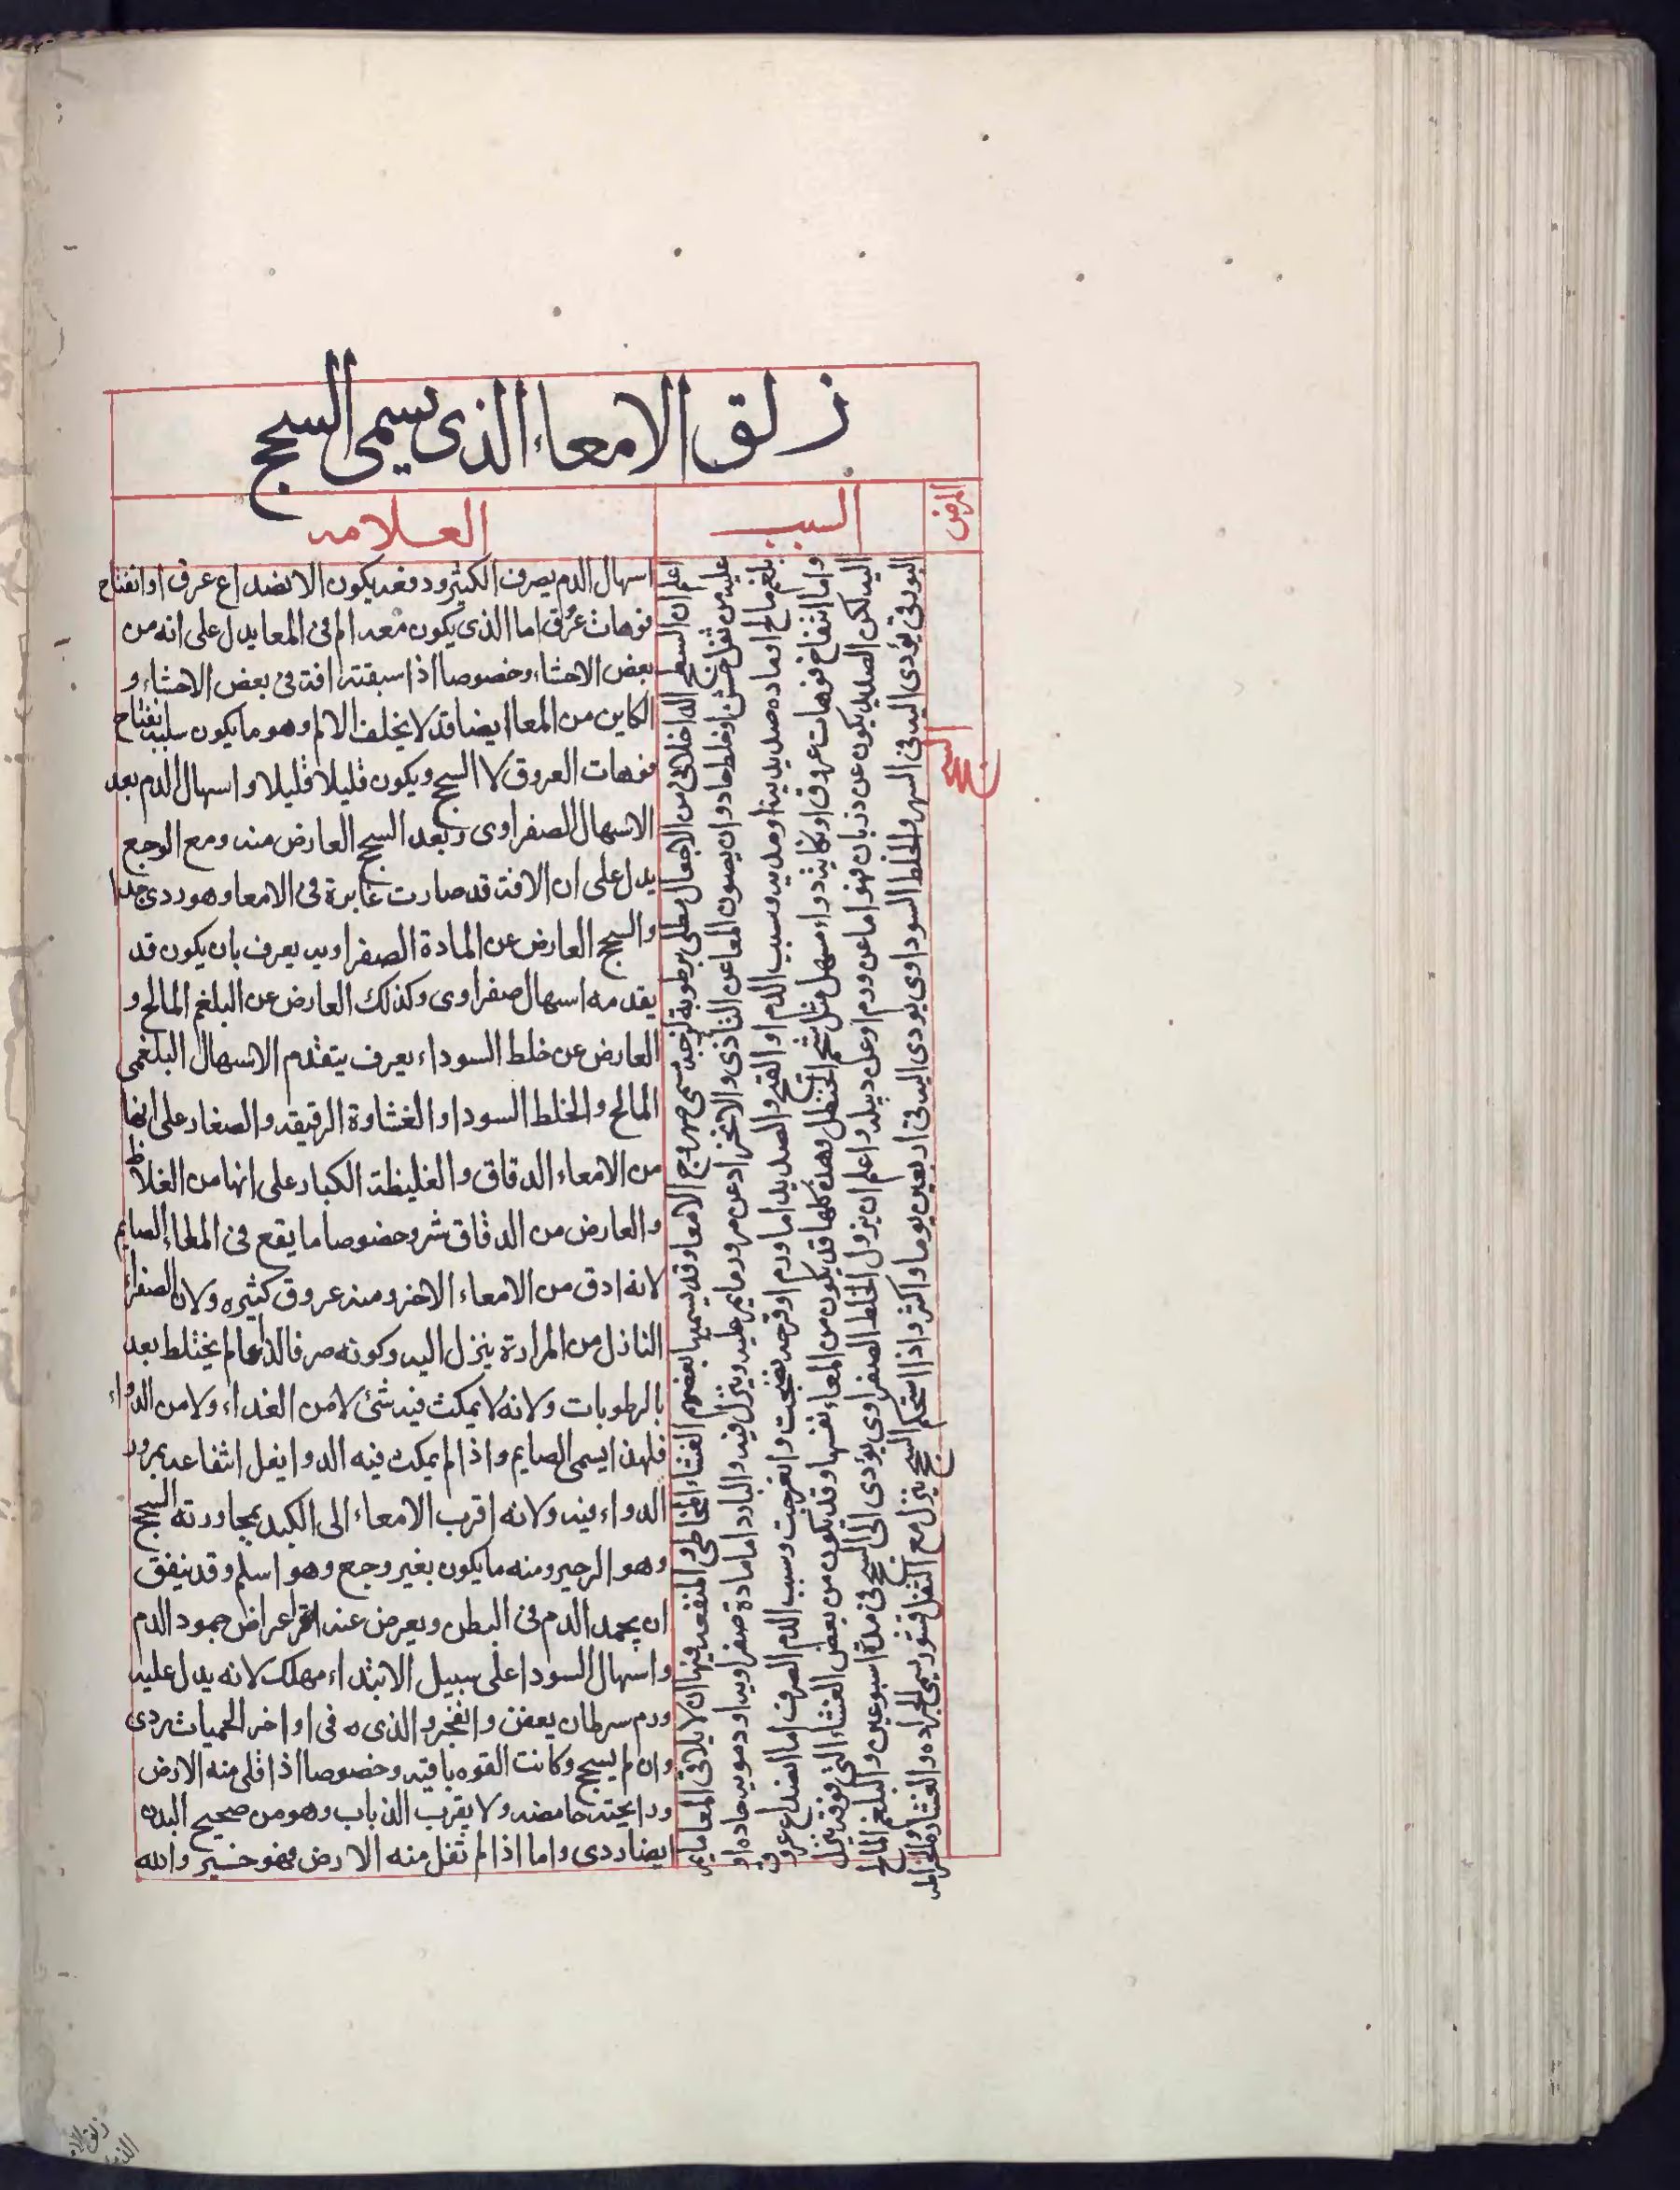 زلق الامعاء الذى يسمى السحج
المرض
السبب
العلامه
السحج
اعلم ان السطح الداخلانى من الامعاء مطلى برطوبة لزجه يسمى صهروج الامعا وقد يسميها بعضهم الغشاء المخاطى والمنفعه فيها ان لا يلاقى المعا ما يمر
عليه من ثفل خشن او خلط حاد وان يصون المعا عن التأذى والانخراد عن مرور ما يمر عليه وينزل فيه والبارد اما مادة صفراويه او دمويه حاده او
بلغم مالح او ماده صديديه او مديه وسبب الدم او القيح والصديد اما ورم او قرحه نضجت وانفرجت وسبب الدم الصرف اما انصداع عروق
واما انتفاخ فوهات عروق او نكايه دواء مسهل مثل شحم الحنظل وهذه كلها قد يكون من المعاء نفسها وقد يكون من بعض الغشاء التى فوق ينزل
اليه لكن الصديد يكون عن ذوبان فهو اما عن ورم او عن دبيله واعلم ان نزول الخلط الصفراوى يؤدى الى السحج فى مدة اسبوعين والبلغم المالح
البورقى يؤدى اليه فى الشهر والخلط السوداوى يودى اليه فى اربعين يوما واكثر واذا استحكم السحج ينزل مع الثفل قشور يسمى الجراده والغشاوه والخراطه
اسهال الدم يصرف الكثير ودفعه يكون الانصداع عرق او انفتاح
فوهات عرق اما الذى يكون معه الم فى المعا يدل على انه من
بعض الاحشاء وخصوصا اذا سبقته افة فى بعض الاحشاء و
الكاين من المعا ايضا قد لا يخلف الالم وهو ما يكون سببه انفتاح
فوهات العروق لا السحج ويكون قليلا قليلا واسهال الدم بعد
الاسهال الصفراوى وبعد السحج العارض منه ومع الوجع
يدل على ان الافة قد صارت غايرة فى الامعا وهو ردى جدا
والسحج العارض عن المادة الصفراويه يعرف بان يكون قد
يقدمه اسهال صفراوى وكذلك العارض عن البلغم المالح و
العارض عن خلط السوداء يعرف يتقدم الاسهال البلغمى
المالح والخلط السودا والغشاوة الرقيقه والصغار على انها
من الامعاء الدقاق والغليظة الكبار على انها من الغلاظ
والعارض من الدقاق شر وخصوصا ما يقع فى المعاء الصايم
لانه ادق من الامعاء الاخر ومنه عروق كثيره ولان الصفراء
النازل من المرارة ينزل اليه وكونه صرفا لذاعا لم يختلط بعد
بالرطوبات ولانه لا يمكث فيه شئ لا من الغداء ولا من الدواء
فلهذا يسمى الصايم واذا لم يمكث فيه الدوا يقل انتفاعه بمرور
الدواء فيه ولانه اقرب الامعاء الى الكبد بمجاورته السحج
وهو الزحير ومنه ما يكون بغير وجع وهو اسلم وقد يتفق
ان يجمد الدم فى البطن ويعرض عنه اعراض جمود الدم
واسهال السودا على سبيل الابتداء مهلك لانه يدل عليه
ورم سرطان يعفن وانفجر والذى ه فى اواخر الحميات ردى
وان لم يسحج وكانت القوه باقيه وخصوصا اذا قلى منه الارض
ورايحته حامضه ولا يقرب الذباب وهو من صحيح البدن
ايضا ردى واما اذا لم تغل منه الارض فهو خير والله
زلق الا
الذى